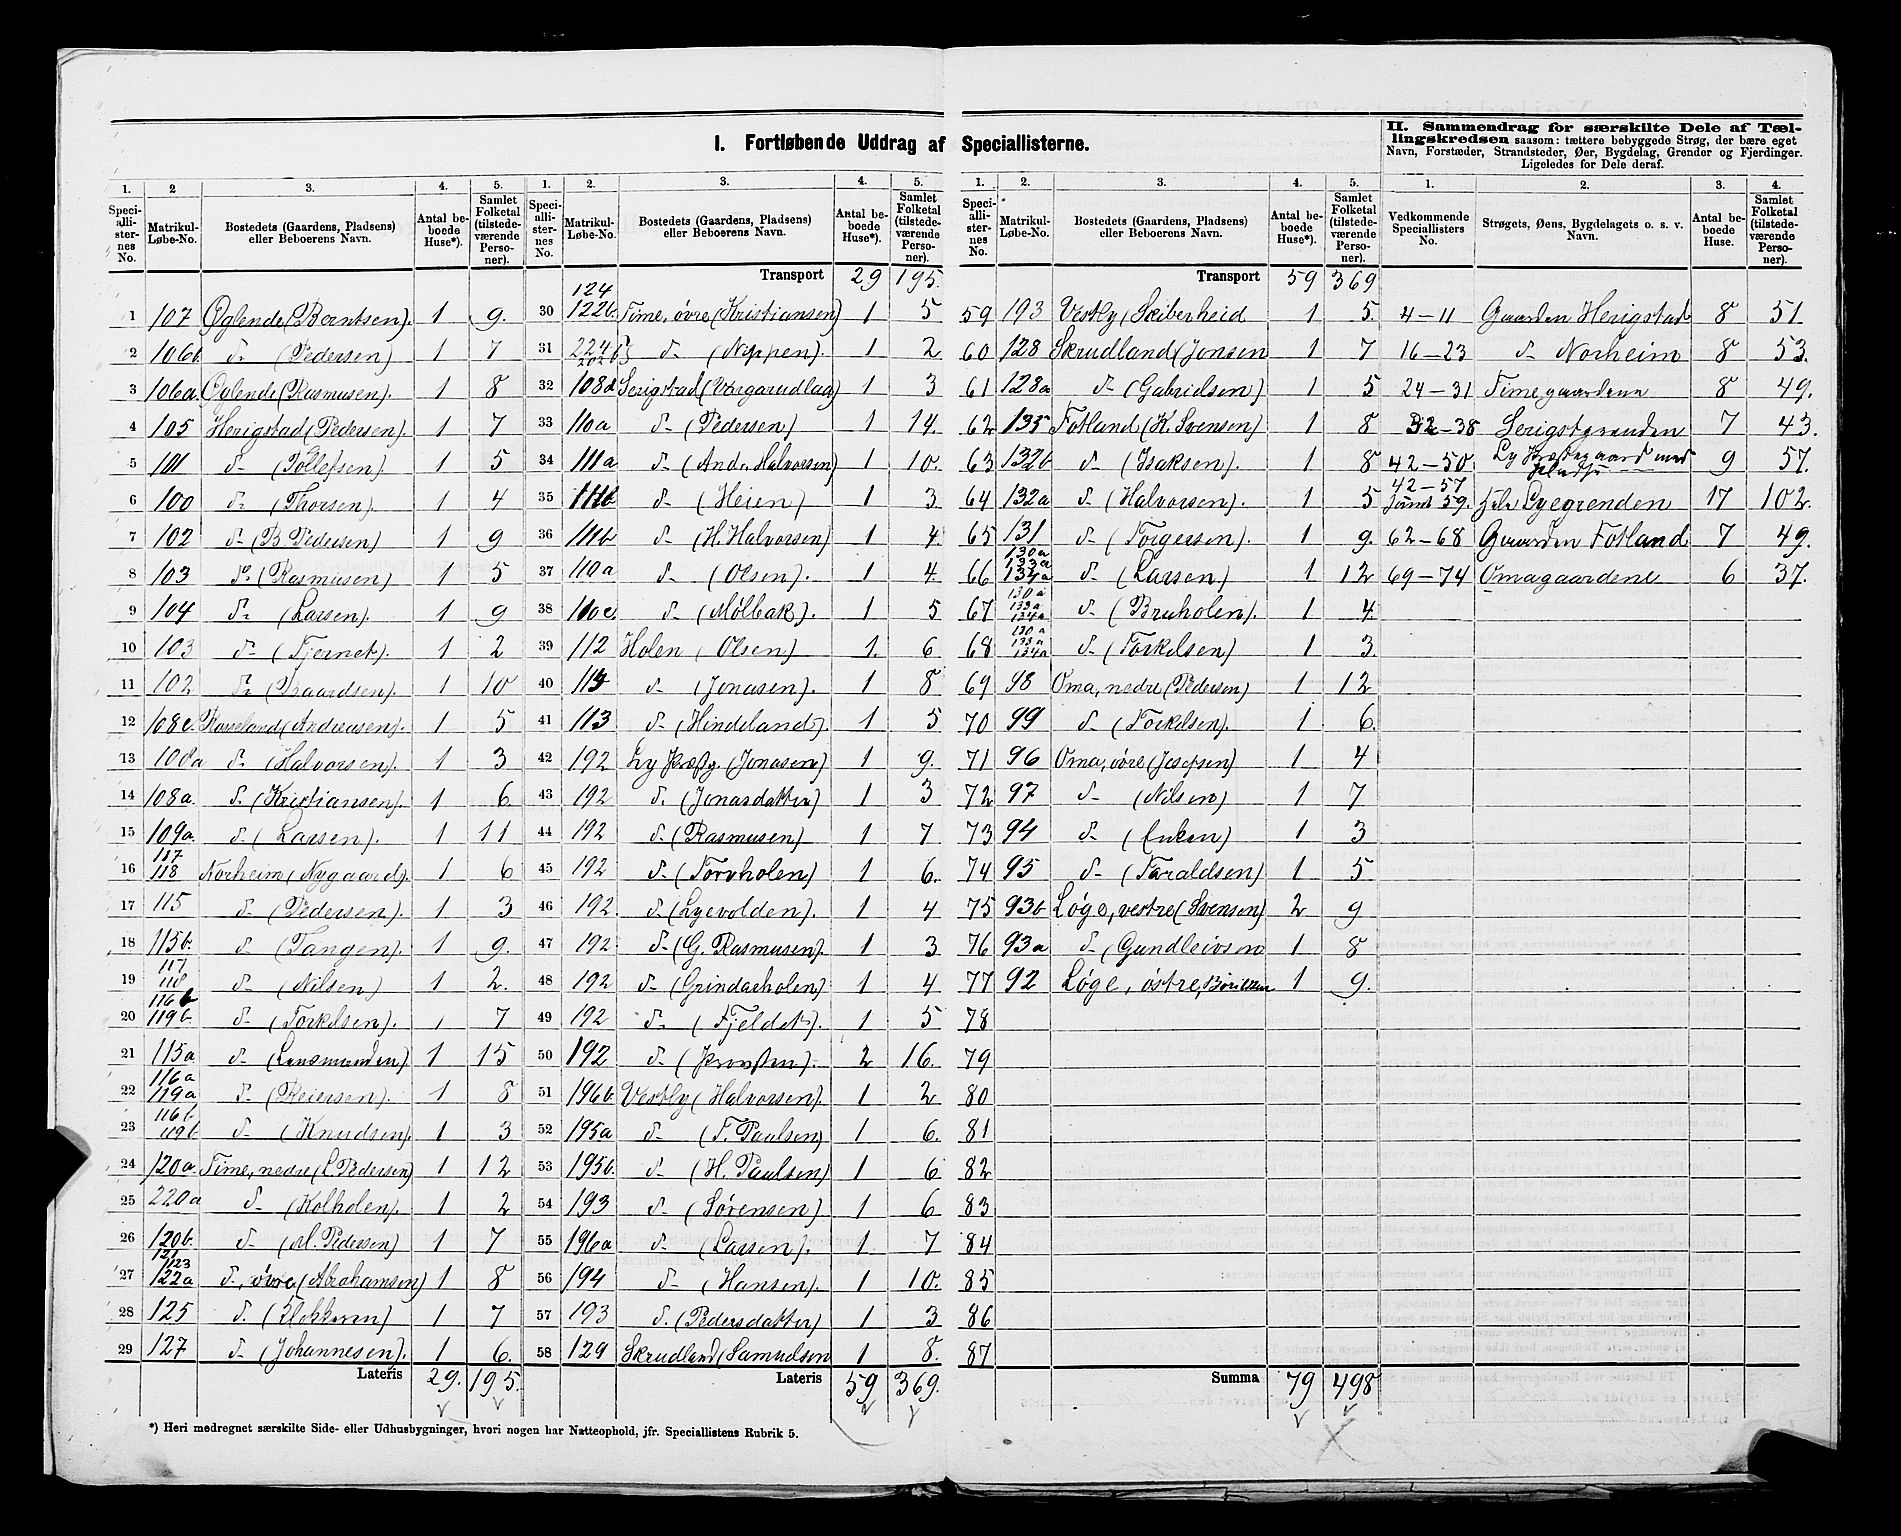 I. Fortløbende Uddrag af Speciallisterne.
II. Sammendrag for særskilte Dele af Tæl-
lingskredsen saasom: tættere bebyggede Strøg, der bære eget
Navn, Forstæder, Strandsteder, Øer, Bygdelag, Grender og Fjerdinger.
Ligeledes for Dele deraf.
1. 2 3. 4. 5.
Speciallisternes No. Matrikul-Løbe-No. Bostedets (Gaardens, Pladsens) eller Beboerens Navn. Antal beboede Huse*). Samlet Folketal (tilstedeværende Personer).
1 107 Øglende (Berntsen). 1 9.
2 106b. d- (Pedersen) 1 7
3 106a. Øglende (Rasmusen). 1 8
4 105 Herigstad (Pedersen). 1 7
5 101 d- (Tollefsen) 1 5
6 100 d- (Thorsen). 1 4
7 102 d- (B Pedersen) 1 9
8 103 do (Rasmusen) 1 5
9 104 d- (Larsen). 1 9
10 103 d- (Tjernet). 1 2
11 102 d- (Gaardsen). 1 10
12 108c. Rosseland (Andreasen). 1 5
13 108a d- (Halvorsen). 1 3
14 108a. d. (Kristiansen). 1 6
15 109a. d- (Larsen). 1 11
16 117 118 Norheim (Nygaard). 1 6
17 115 d- (Pedersen). 1 3
18 115b. d- (Tangen). 1 9.
19 117 118 d- (Nilsen) 1 2.
20 116b 119b. d- (Torkelsen). 1 7
21 115a d- (Lensmanden) 1 15
22 116a 119a d- (Reiersen). 1 8
23 116b. 119b d- (Knudsen). 1 3
24 120a. Time, nedre (L Pedersen) 1 12
25 220a d- (Kolholen). 1 2
26 120b. d- (M. Pedersen) 1 7
27 121 123 122a d-, øvre (Abrahamsen) 1 8
28 125 d. (Klokkeren) 1 7
29 127 d- (Johannesen). 1 6.
Lateris 29. 195.
1. 2. 3. 4. 5.
Speciallisternes No. Matrikul-Løbe-No. Bostedets (Gaardens, Pladsens) eller Beboerens Navn. Antal beboede Huse*). Samlet Folketal (tilstedeværende Personer).
Transport 29 195.
30 124 122b. Time, øvre (Kristiansen) 1 5
31 224b 202b d- (Nippen). 1 2
32 108d Serigstad (Vargarudlag) 1 3
33 110a d- (Pedersen) 1 14.
34 111a d- (Andr. Halvorsen) 1 10.
35 111b d- (Heien) 1 3.
36 111b d- (H. Halvorsen) 1 4.
37 110a d- (Olsen). 1 4.
38 110c. d- (Mølbak). 1 5
39 112 Holen (Olsen) 1. 6.
40 113 d- (Jonasen). 1 8
41 113 d- (Hindeland). 1 5
42 192 Ly Præstg. (Jonasen) 1 9.
43 192 d. (Jonasdatter) 1 3
44 192 d- (Rasmusen) 1 7
45 192 d- (Torvholen) 1 6.
46 192. d- (Lyevolden). 1 4
47 192 d- (G. Rasmusen). 1 3
48 192 d- (Grindarholen) 1 4
49 192 d- (Fjeldet). 1 5
50 192 d- (Provsten). 2 16.
51 196b. Vestly (Halvorsen). 1 2
52 195a d- (T. Paulsen) 1 6.
53 195b. d- (H. Paulsen) 1 6
54 193 d- (Sørensen) 1 6
55 196a d- (Larsen). 1 7
56 194 d- (Hansen). 1 10.
57 193 d. (Pedersdatter) 1 3
58 129 Skrudland (Samuelsen 1 8.
Lateris 59 369.
1. 2. 3. 4. 5.
Speciallisternes No. Matrikul-Løbe-No. Bostedets (Gaardens, Pladsens) eller Beboerens Navn. Antal beboede Huse*). Samlet Folketal (tilstedeværende Personer).
Transport 59 369
59 193 Vestly (Skiberheid 1 5.
60 128 Skrudland (Jonsen 1 7
61 128a d- (Gabrielsen) 1 5
62 135 Fotland (K. Svensen) 1 8
63 132b d- (Isaksen). 1 8
64 132a d- (Halvorsen). 1 5
65 131 d- (Torgersen). 1 9.
66 130a 133a 134a d- (Larsen) 1 12
67 130a 133a 134a d- (Bruholen). 1 4.
68 130a 133a 134a d- (Torkelsen) 1 3.
69 98 Oma, nedre (Pedersen) 1 12
70 99 d- (Torkelsen). 1 6.
71 96 Oma, øvre (Josefsen) 1 4
72 97 d- (Nilsen) 1 7
73 94 d- (Enken) 1 3
74 95 d- (Taraldsen) 1 5
75 93b Løge, vestre (Svensen) 2 9
76 93a d- (Gundleivsen 1 8
77 92 Løge, østre, 1 9.
78
79
80
81
82
83
84
85
86
87
Summa 79 498
1. 2. 3. 4.
Vedkommende Speciallisters No. Strøgets, Øens, Bygdelagets o. s. v. Navn. Antal beboede Huse. Samlet Folketal (tilstedeværende Personer).
4-11 Gaarden Herigstad 8 51
16-23 d- Norheim 8 53.
24-31 Timegaardene 8 49.
32-38 Serigstgrenden 7 43.
42-50. Ly Præstegaard med 9 57.
42-57 samt 59. hele Lyegrenden 17 102.
62-68 Gaarden Fotland 7 49.
69-74 Omagaardene 6 37.
*) Heri medregnet særskilte Side- eller Udhusbygninger, hvori nogen har Natteophold, jfr. Speciallistens Rubrik 5.